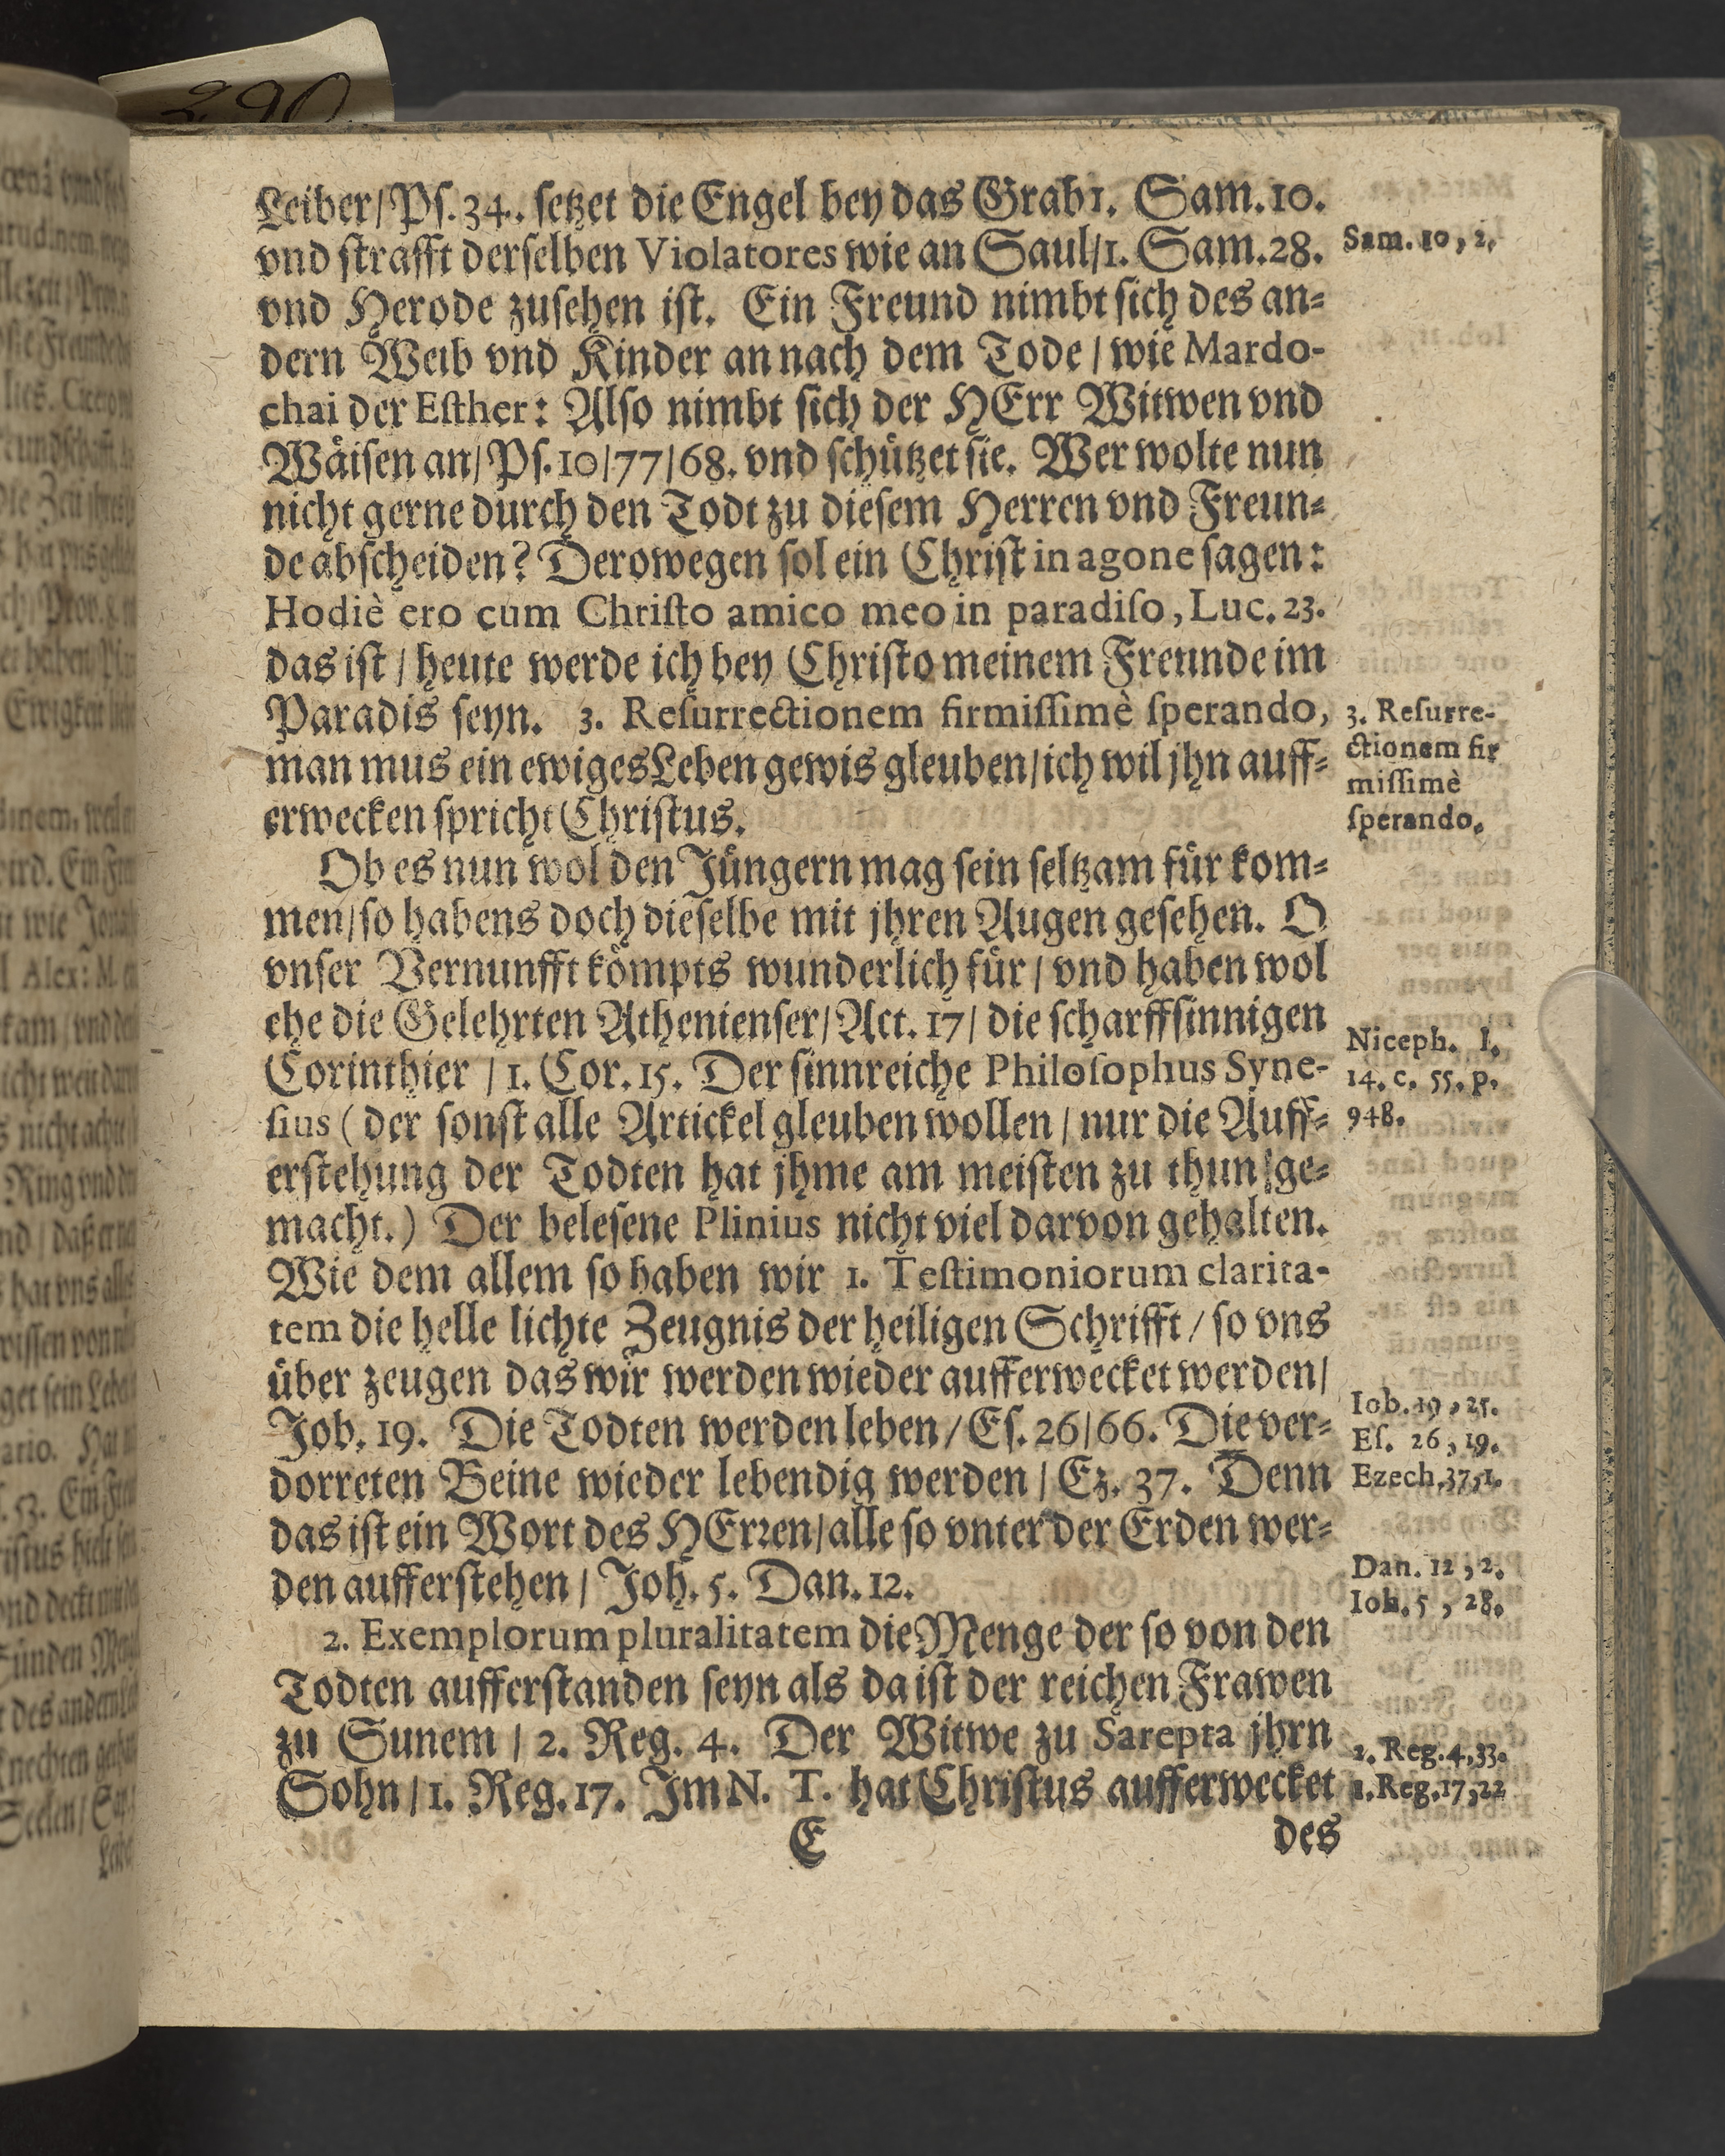 290
Leiber/ Pſ. 34. ſetzet die Engel bey das Grab 1. Sam. 10.
vnd ſtrafft derſelben Violatores wie an Saul/ 1. Sam. 28.
vnd Herode zuſehen iſt. Ein Freund nimbt ſich des an⸗
dern Weib vnd Kinder an nach dem Tode / wie Mardo-
chai der Eſther: Alſo nimbt ſich der HErr Witwen vnd
Wåiſen an/ Pſ. 10/77/68. vnd ſchůtzet ſie. Wer wolte nun
nicht gerne durch den Todt zu dieſem Herren vnd Freun⸗
de abſcheiden? Derowegen ſol ein Chriſt in agone ſagen:
Hodiè ero cum Chriſto amico meo in paradiſo, Luc. 23.
das iſt / heute werde ich bey Chriſto meinem Freunde im
Paradis ſeyn. 3. Reſurrectionem firmiſſimè ſperando,
man mus ein ewiges Leben gewis gleuben/ ich wil jhn auff⸗
erwecken ſpricht Chriſtus.
Ob es nun wol den Jůngern mag ſein ſeltzam fůr kom⸗
men/ ſo habens doch dieſelbe mit jhren Augen geſehen. O
vnſer Vernunfft kőmpts wunderlich fůr / vnd haben wol
ehe die Gelehrten Athenienſer/ Act. 17/ die ſcharffſinnigen
Corinthier / 1. Cor. 15. Der ſinnreiche Philoſophus Syne-
ſius ( der ſonſt alle Artickel gleuben wollen / nur die Auff⸗
erſtehung der Todten hat jhme am meiſten zu thun ge⸗
macht.) Der beleſene Plinius nicht viel darvon gehalten.
Wie dem allem ſo haben wir 1. Teſtimoniorum clarita-
tem die helle lichte Zeugnis der heiligen Schrifft / ſo vns
ůber zeugen das wir werden wieder aufferwecket werden/
Job. 19. Die Todten werden leben / Eſ. 26/66. Die ver⸗
dorreten Beine wieder lebendig werden / Ez. 37. Denn
das iſt ein Wort des HErꝛen/ alle ſo vnter der Erden wer⸗
den aufferſtehen / Joh. 5. Dan. 12.
2. Exemplorum pluralitatem die Menge der ſo von den
Todten aufferſtanden ſeyn als da iſt der reichen Frawen
zu Sunem / 2. Reg. 4. Der Witwe zu Sarepta jhrn
Sohn / 1. Reg. 17. Jm N. T. hat Chriſtus aufferwecket
E des
Sam. 10, 2.
3. Reſurre-
ctionem fir
miſſimè
ſperando.
Niceph. l.
14. c. 55. p.
948.
Iob. 19, 25.
Eſ. 26, 19.
Ezech. 37, 1.
Dan. 12, 2.
Ioh. 5, 28.
2. Reg. 4, 33.
1. Reg. 17, 22